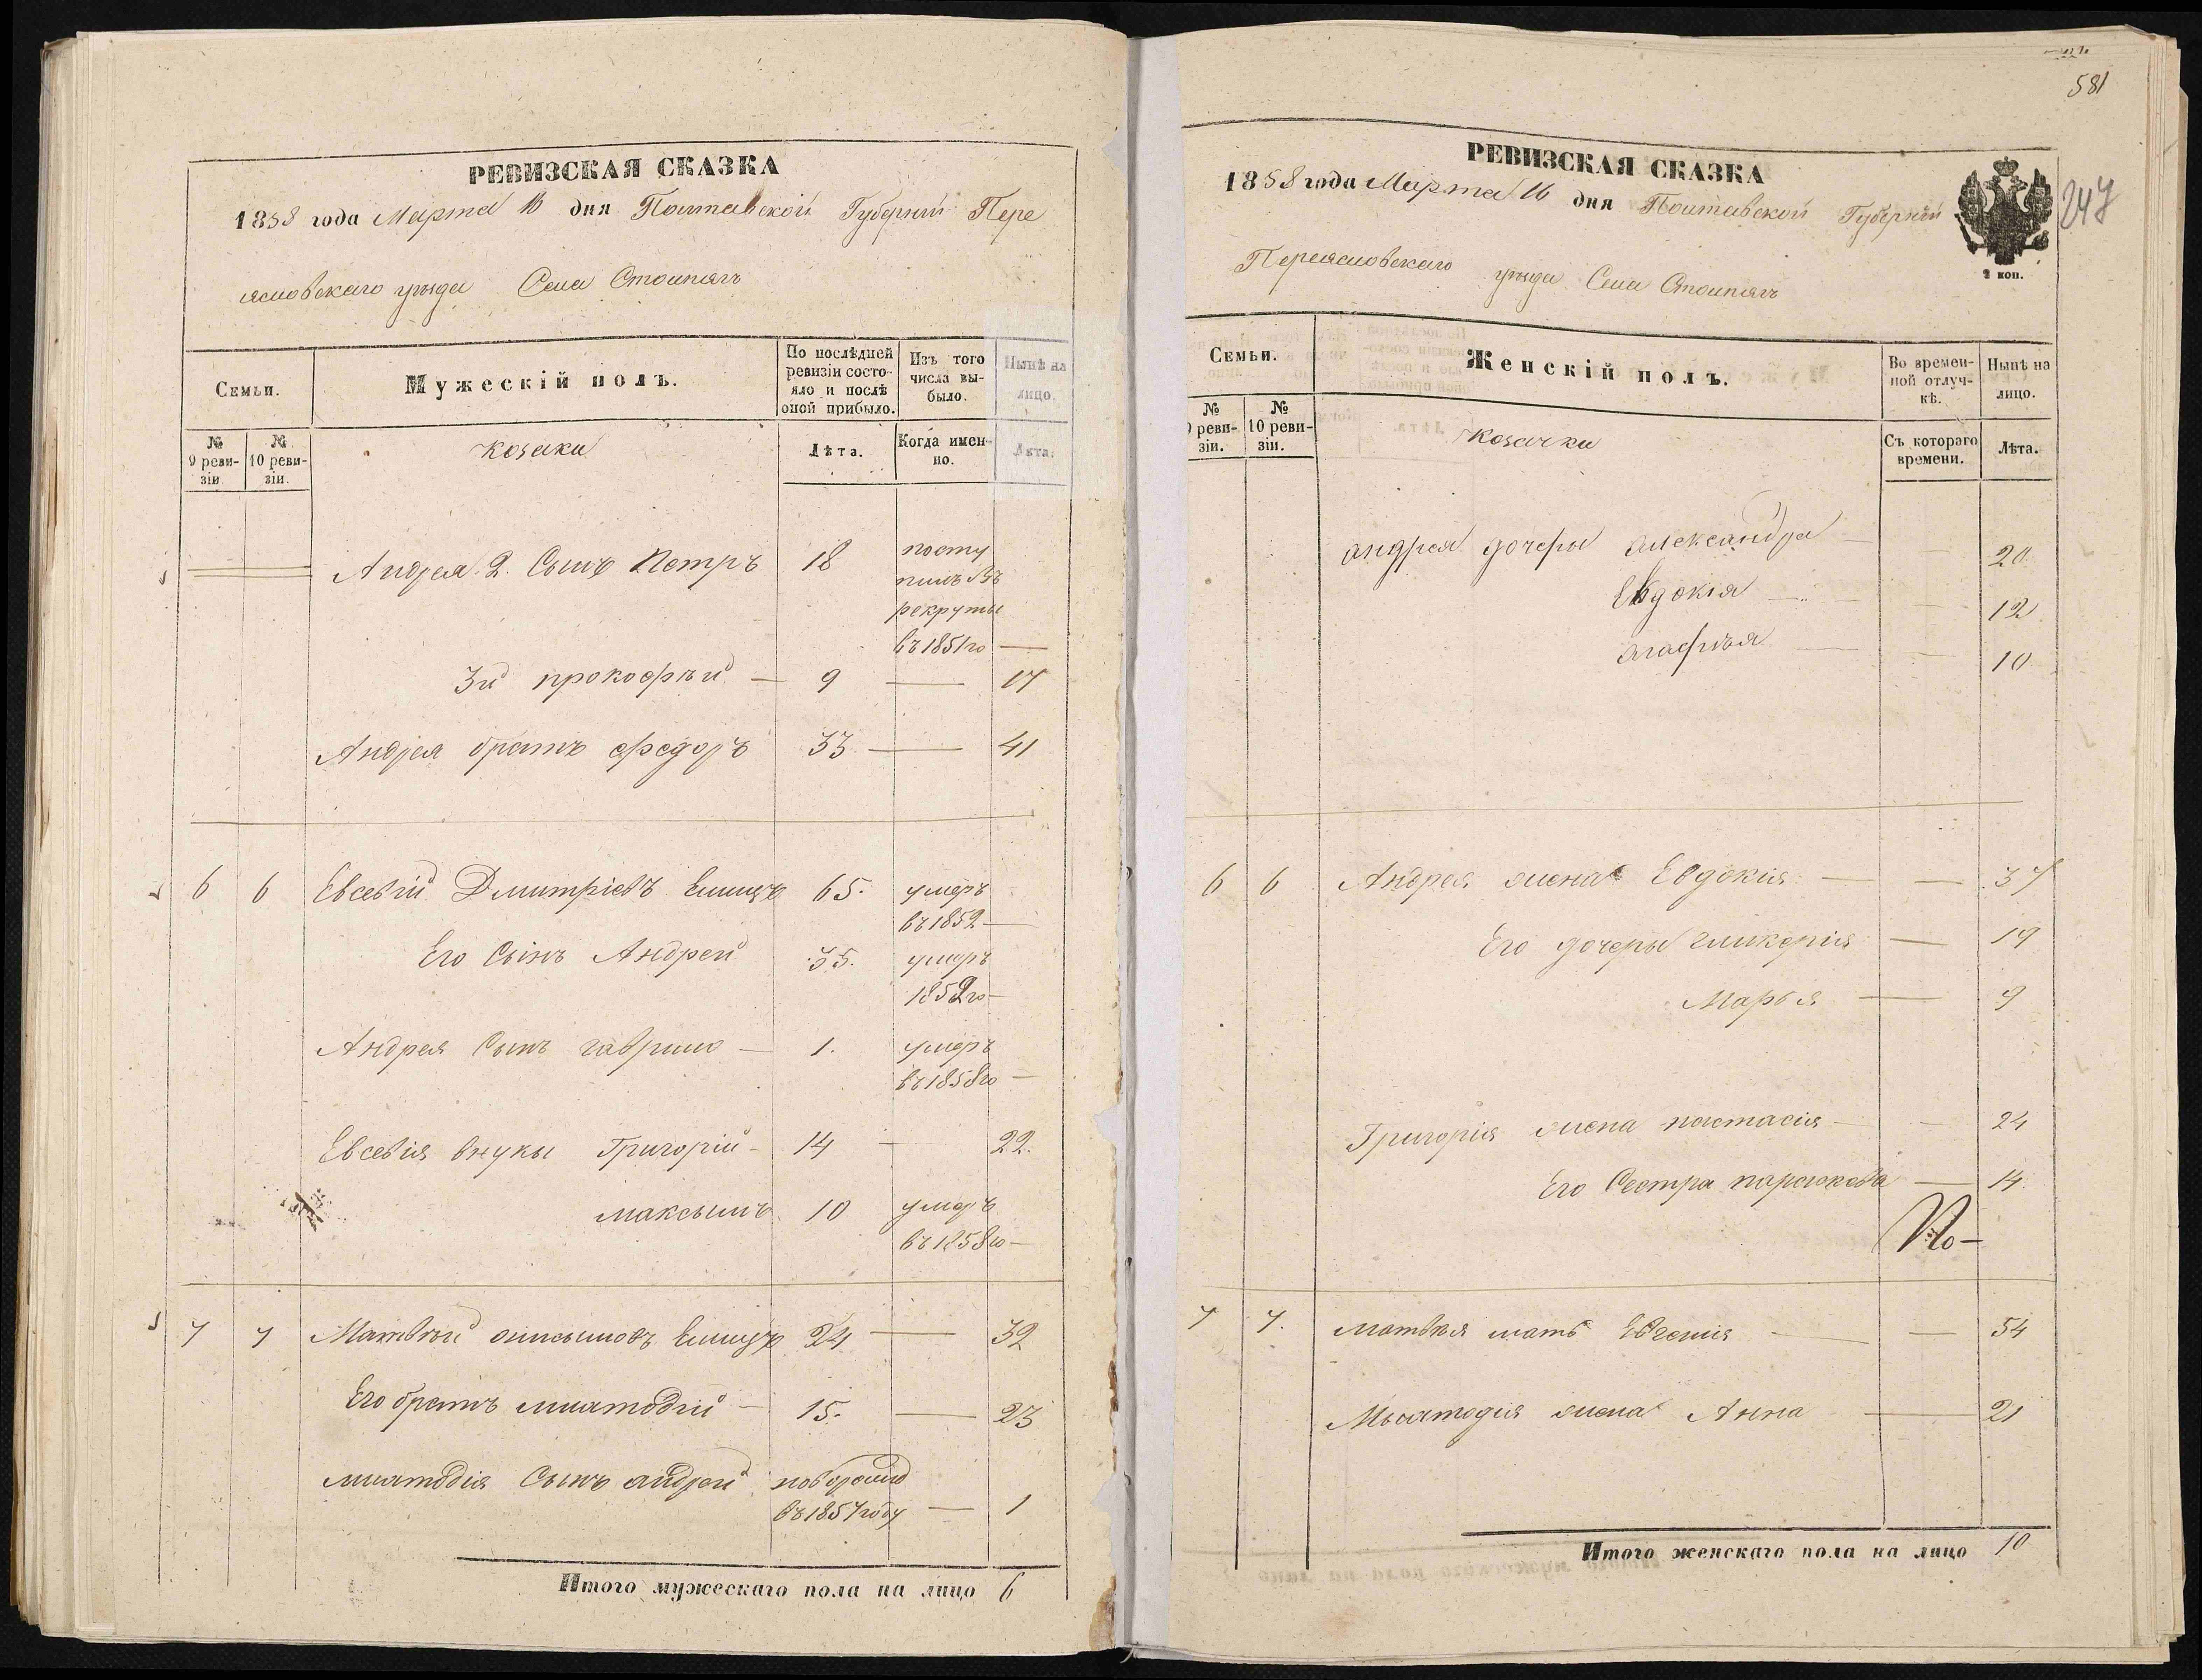 РЕВИЗСКАЯ СКАЗКА
1858 года Марта 16 дня Полтавской Губернии Пере
яславскаго уезда Села Столпягъ
Семьи.
Мужескій полъ.
По послѣдней ревизіи состояло и послѣ оной прибыло.
Изъ того числа выбыло.
Нынѣ на лицо.
№ 9 ревизіи.
№ 10 ревизіи.
козаки
Лѣта.
Когда именно.
Лѣта.
Андрея 2. Сынъ Петръ 18 посту
пилъ въ
рекруты
въ 1851го —
3й прокофѣй — 9 — 17
Андрея братъ федоръ 33 — 41
6 6 Евсевій Дмитріевъ 65. умеръ
въ 1852 —
Его Сынъ Андрей 35. умеръ
1852го —
Андрея Сынъ гаврило — 1. умеръ
въ 1858го —
Евсевія внуки Григорій — 14 — 22.
максымъ 10 умеръ
въ 1858го —
7 7 Матвѣй 24 — 32
Его братъ — 15. — 23
Сынъ андрей
въ 1857 году — 1
Итого мужескаго пола на лицо 6
581
РЕВИЗСКАЯ СКАЗКА
1858 года Марта 16 дня Полтавской Губерніи
247
Переясловскаго уезда Села Столпягъ
2 коп.
Семьи.
Женскій полъ.
Во временной отлучкѣ.
Нынѣ на лицо.
№ 9 ревизіи.
№ 10 ревизіи.
козачки
Съ котораго времени.
Лѣта.
андрея дочеры александра — 20
Евдокія — 12
агафія — 10
6 6 Андрея жена Евдокія — 37
Его дочеры гликерія — 19
Марья — 9
Григорія жена настасія — 24
Его Сестра — 14
7 7. матвѣя мать Евгенія — 54
жена Анна — 21
Итого женскаго пола на лицо 10